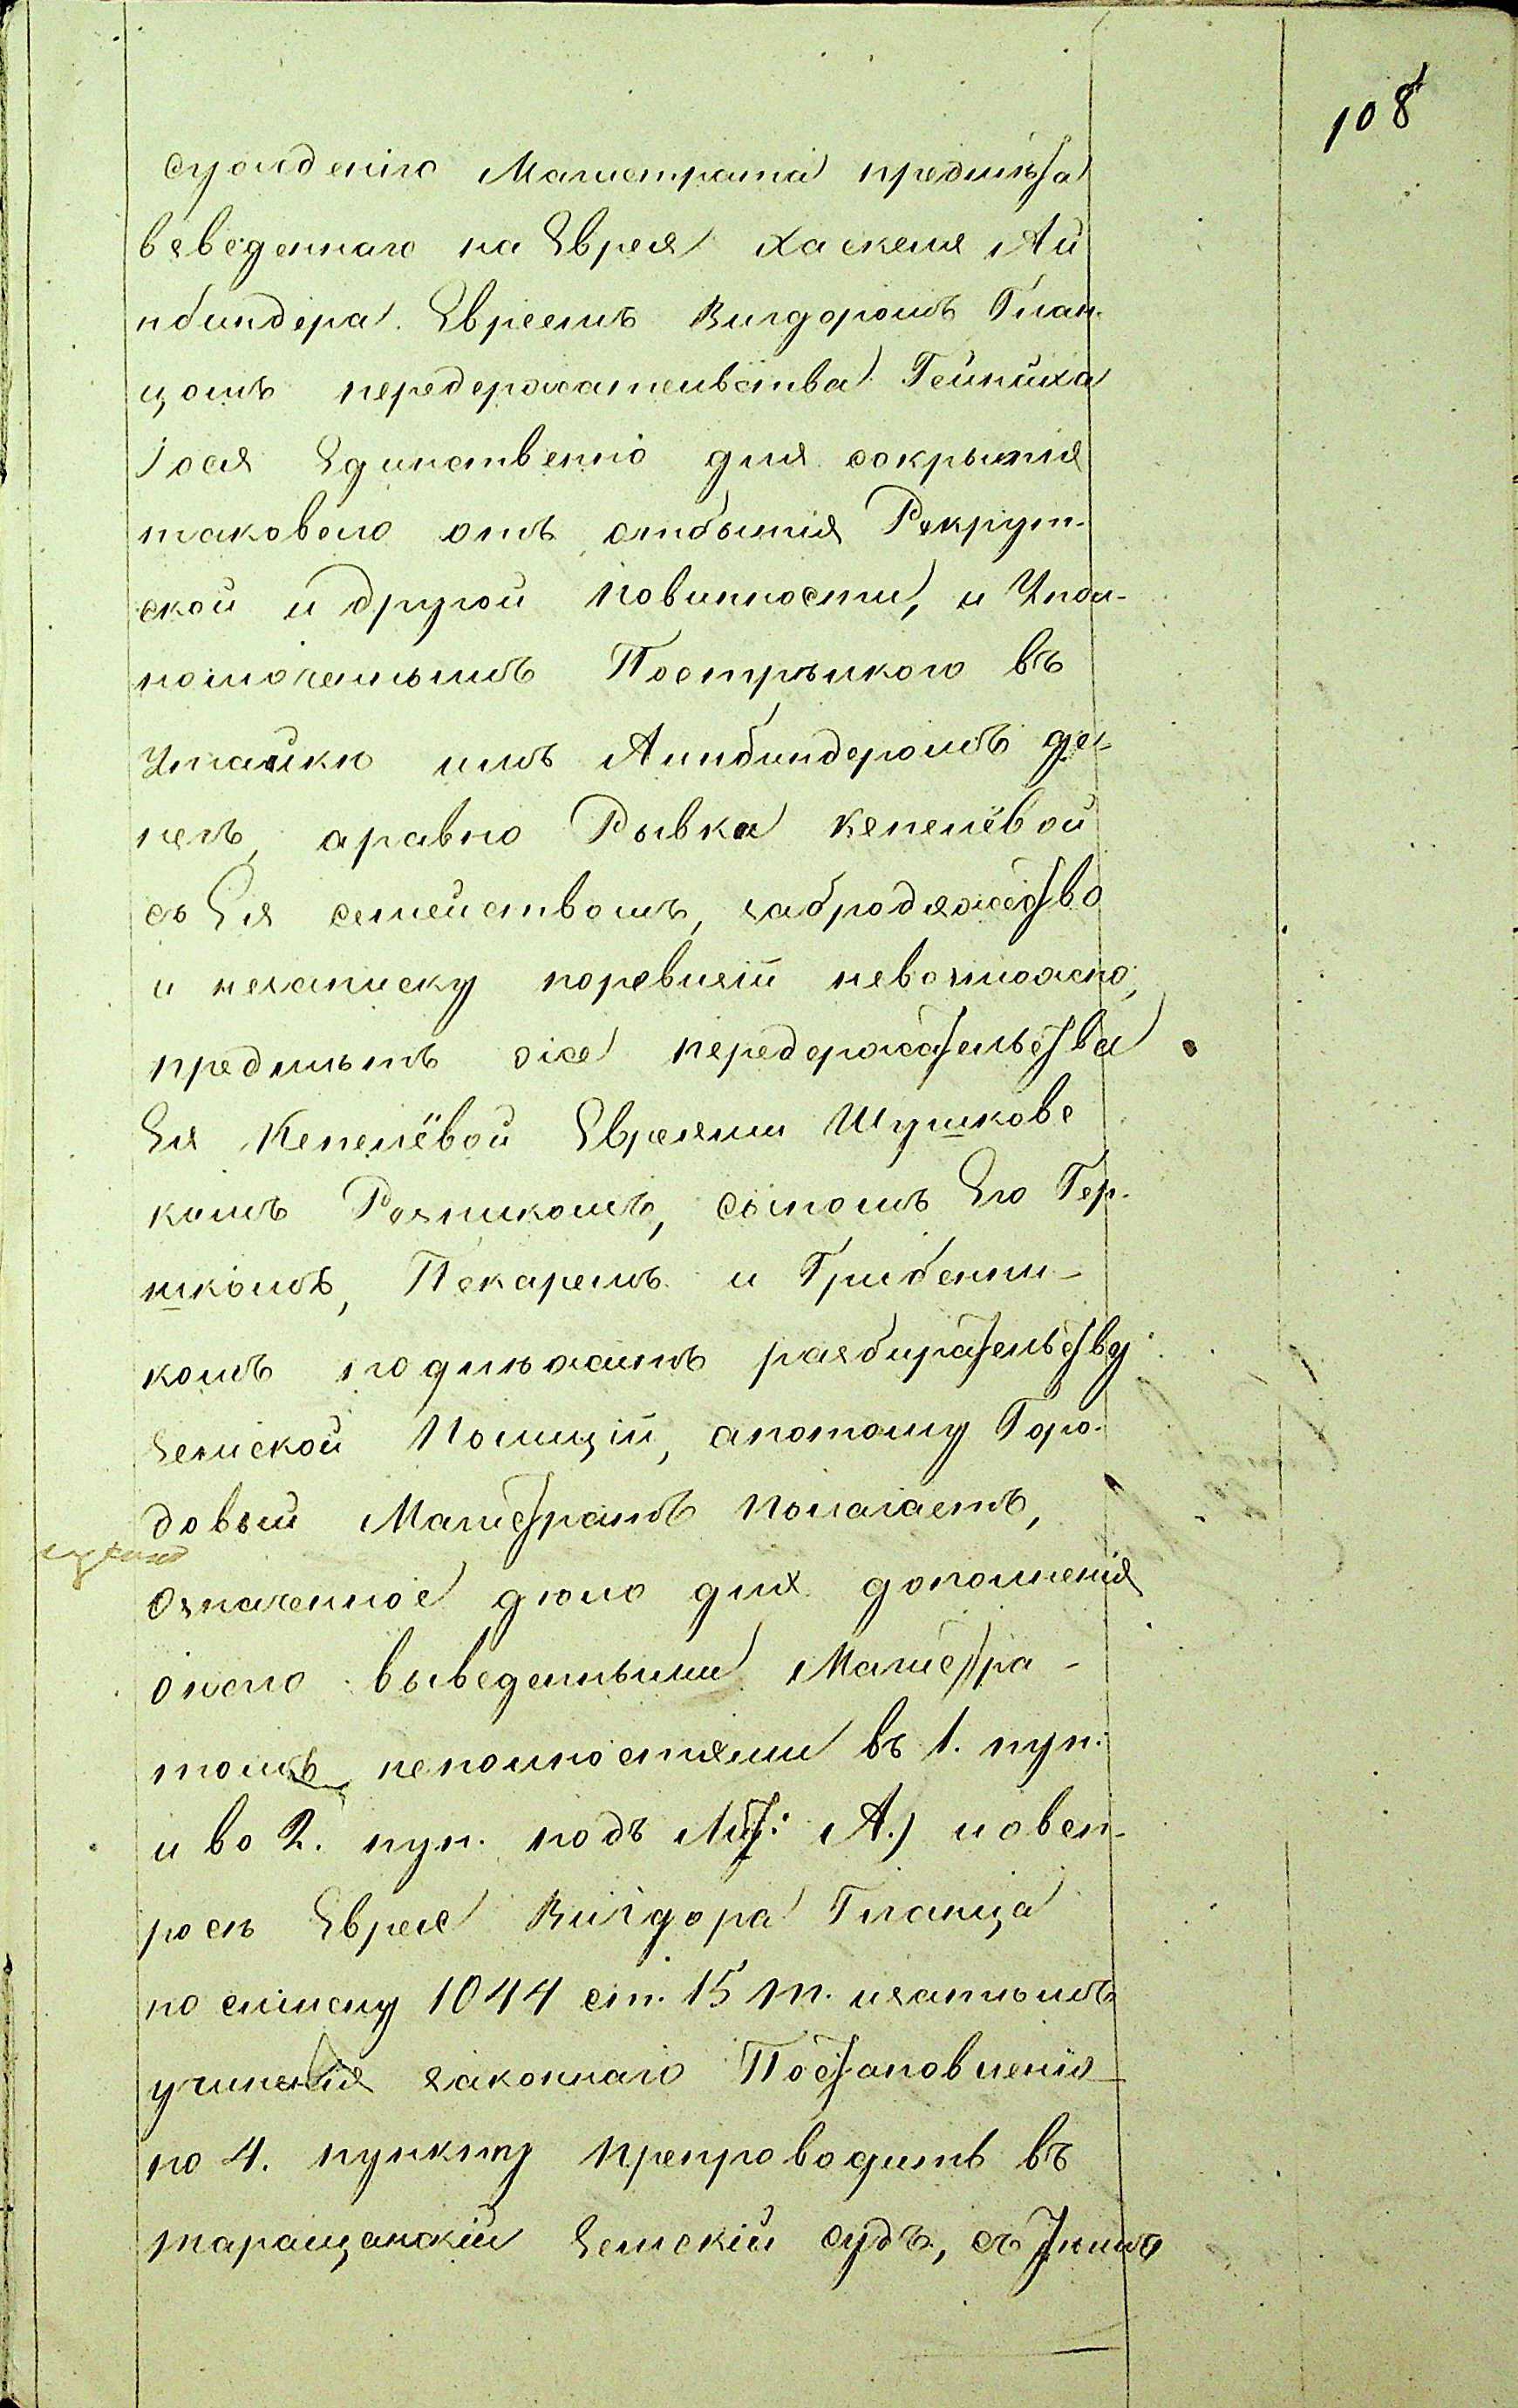 108
сужденію Магистрата предмѣта
взведеннаго на Еврея Хаскеля Ай
нбиндера Евреемъ Вигдоромъ Глан-
цомъ передержательства Гейниха
Іося Единственно для сокрытія
таковаго отъ отбытія Рекрут-
ской и другой повинности, и Упол-
номоченнымъ Пострѣлкого въ
Утайки имъ Айнбиндеромъ де-
негъ, аравно Рывка Кепелёвой
съ Ея семействомъ, забродяжество
и незаписку поревизіи невозможно,
предметъ же передержательства
Ея Кепелёвой Евреями Шушкове
кимъ Резникомъ, сыномъ Его Гер-
шкомъ, Пекаремъ и Грибенни-
комъ подлежатъ разбирательству
Земской Полиціи, апотому Горо-
довый Магистратъ Полагаетъ,
Означенное дело для дополненія
онаго выведенными Магистра-
томъ неполностями въ 1. пун:
и во 2. пун. подъ Лит: А.) и овен-
росъ Еврея Вигдора Гланца
по смыслу 1044 ст. 15 т. изатѣмъ
учиненія законнаго Постановленія
по 4. пункту препроводить въ
таращанскій Земскій судъ, съ тѣмъ